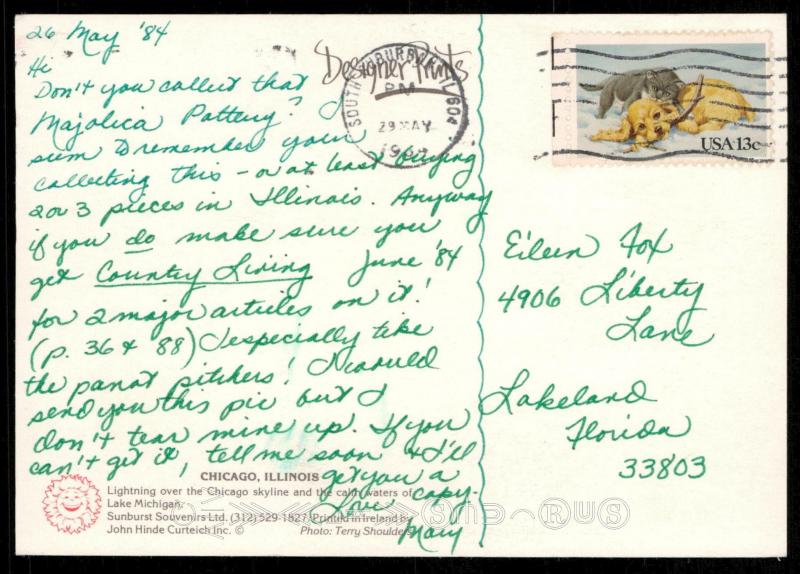 26 May '84
Hi
Don't you collect that
Majolica Pottery? I
seem to remember your
collecting this - or at least buying
2 or 3 pieces in Illinois. Anyway
if you do make sure you
get Country Living June '84
for 2 major articles on it!
(p. 36 & 88) I especially like
the parrot pitchers! I would
send you this pic but I
don't tear mine up. If you
can't get it, tell me soon & I'll
get you a
copy.
Love
Mary
Designer Prints
SOUTH SUBURBAN, IL 604
PM
29 MAY
1984
USA 13c
Eileen Fox
4906 Liberty
Lane
Lakeland
Florida
33803
CHICAGO, ILLINOIS
Lightning over the Chicago skyline and the calm waters of
Lake Michigan.
Sunburst Souvenirs Ltd. (312) 529-1827 Printed in Ireland by
John Hinde Curteich Inc. © Photo: Terry Shoulders
RUS